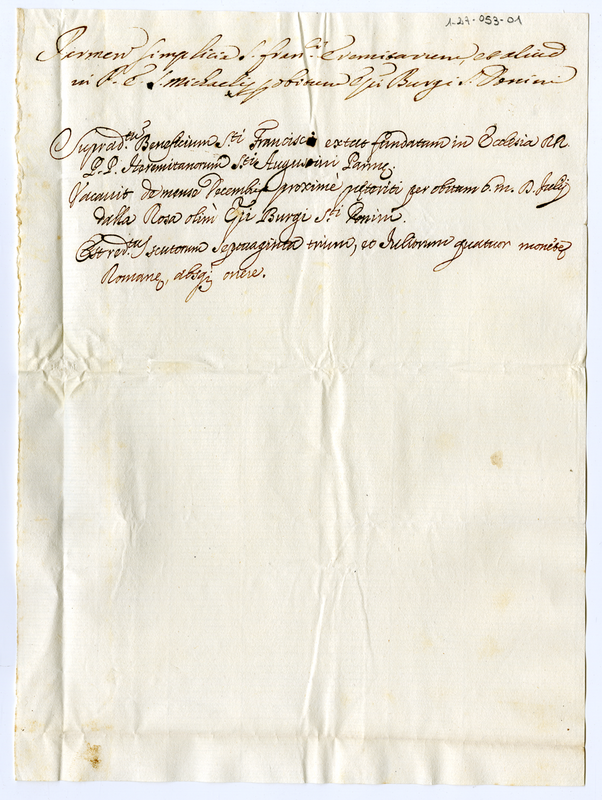 1-27-053-01
Parmen simplicia S. Fran.ci Eremitarum, et aliud
in P. E. S. Michaelis p obitum Epi Burgi S. Donini
Suprad.tu Beneficium S.ti Francisci extat fundatum in Ecclesia RR.
P.P. Heremitanorum S.ti Augustini Parmę.
Vacavit de mense Decembri proxime pręteriti per obitum b. m. D. Julij
dalla Rosa olim Epi Burgi S.ti Donini.
Est red.tus scutorum septuaginta trium, et Juliorum quatuor monetę
Romanę, absq. onere.